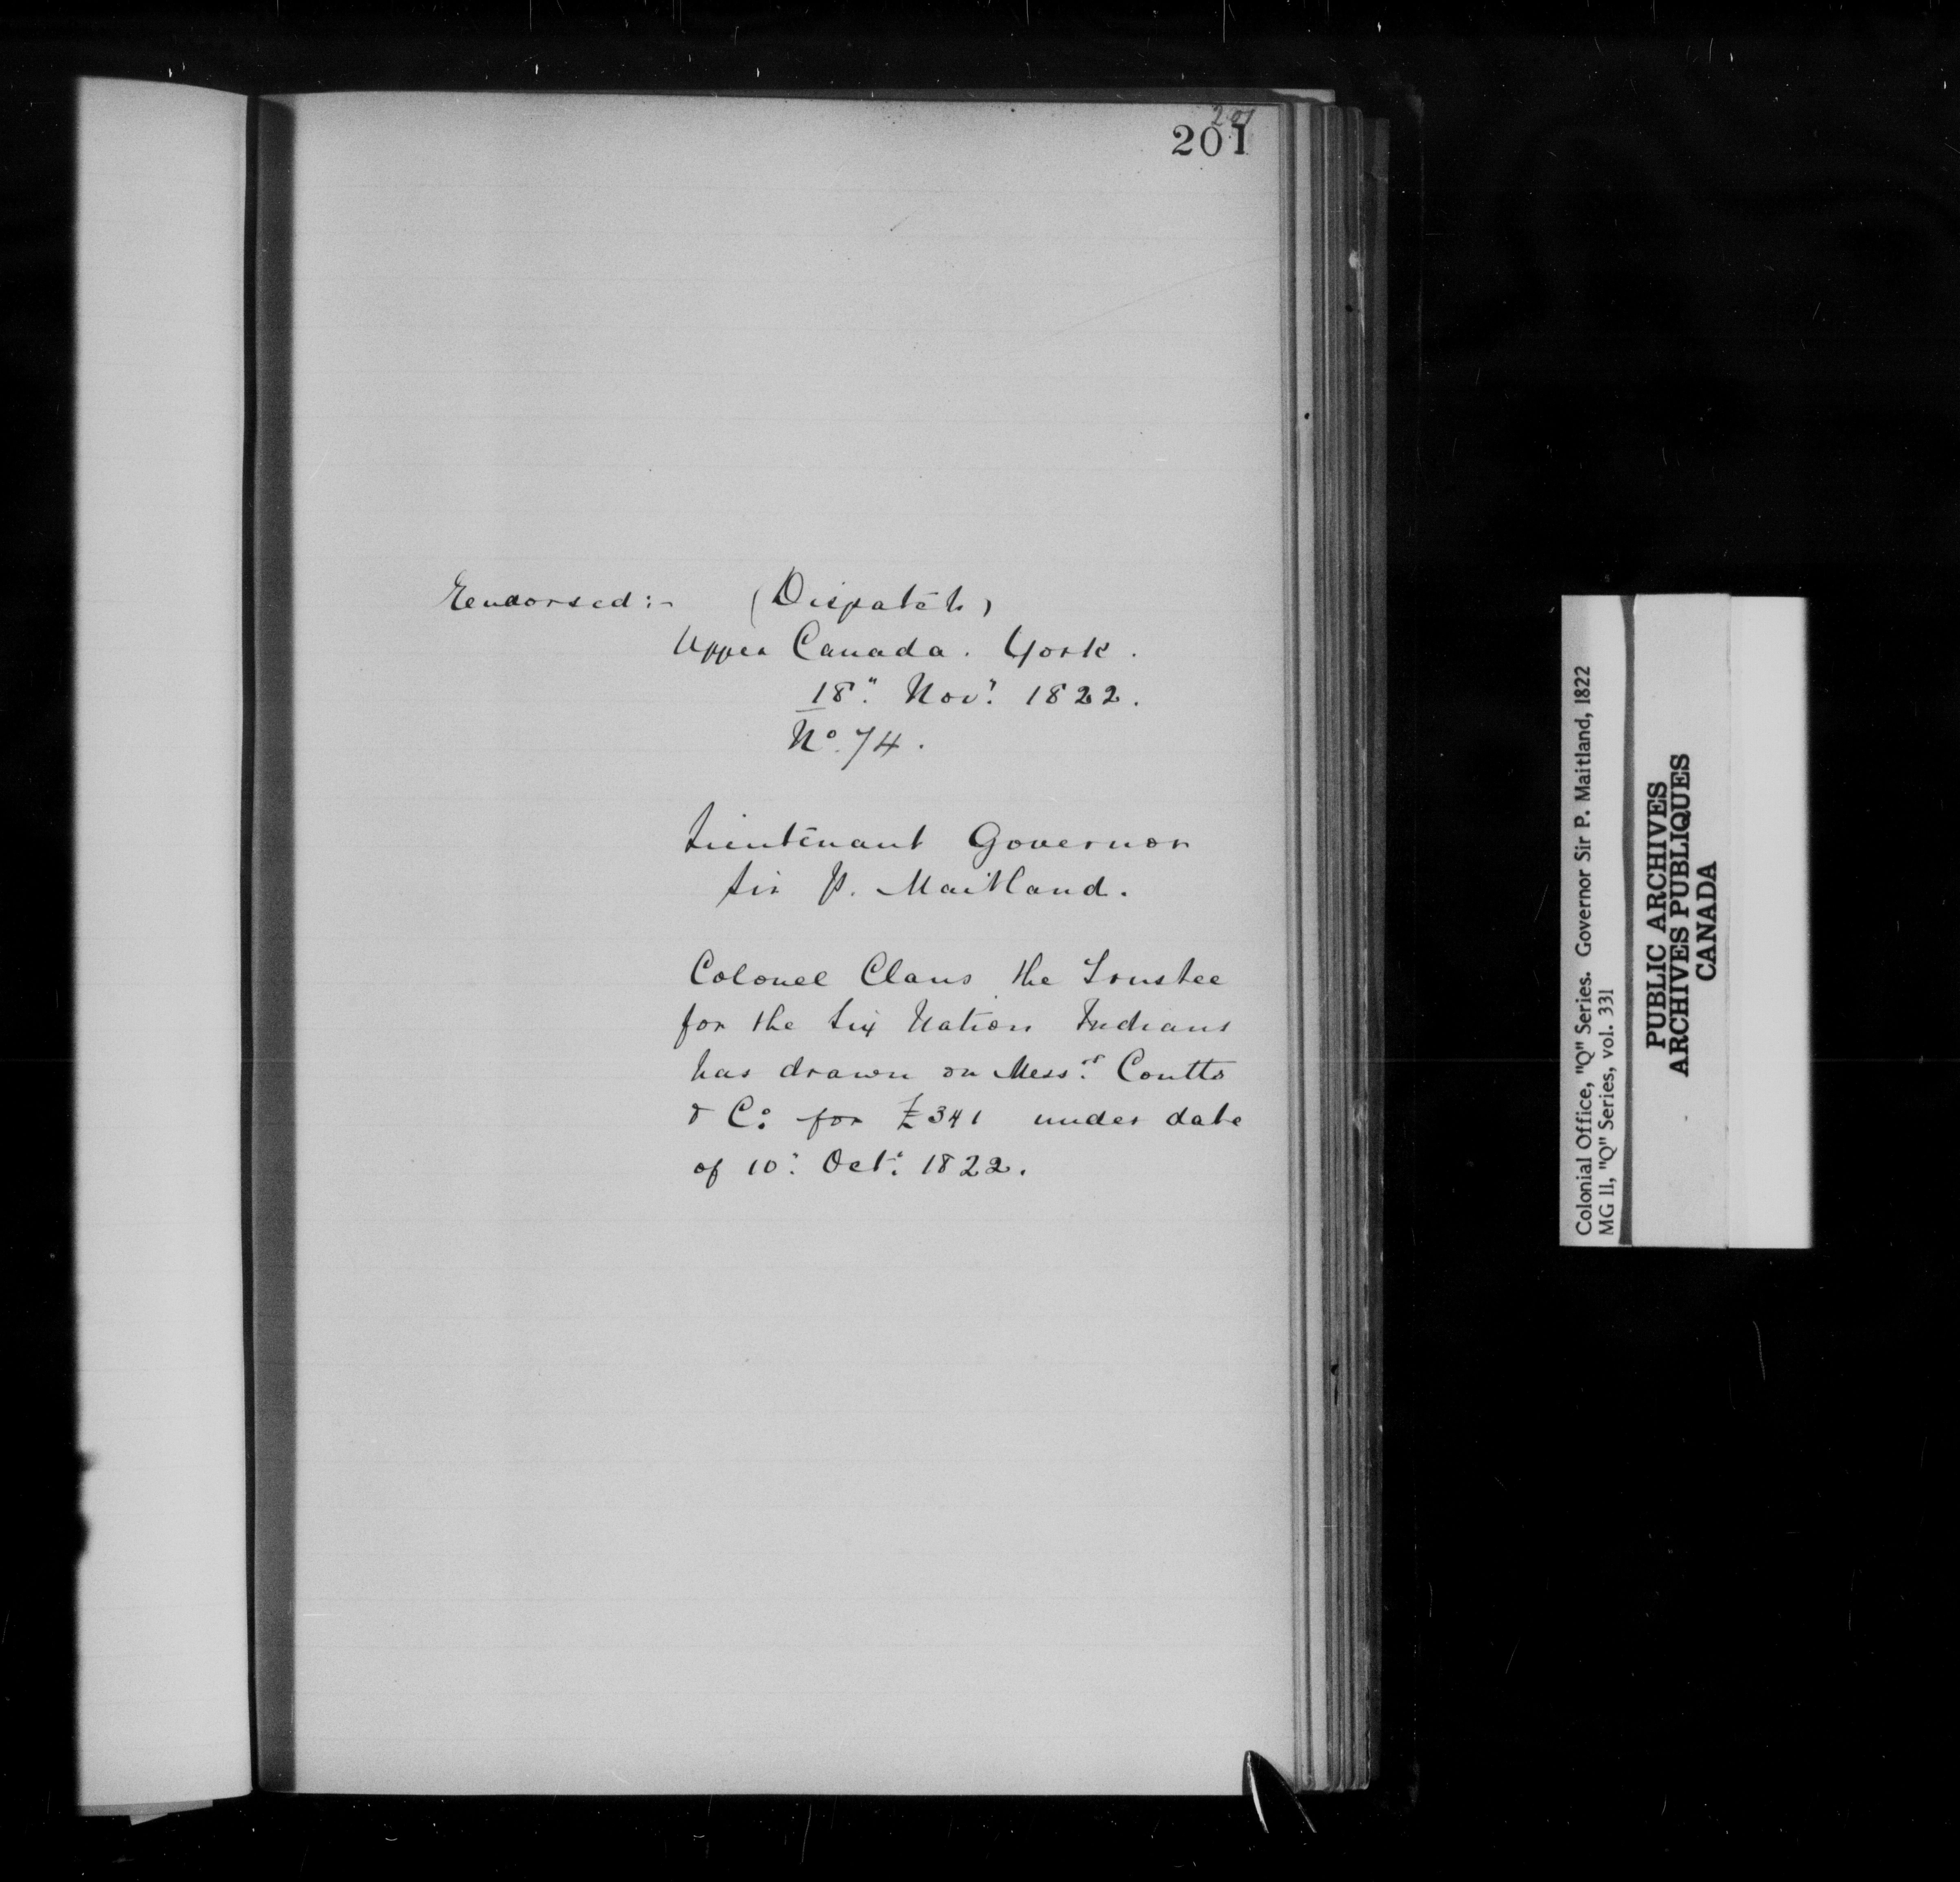 201
201
Endorsed:- (Dispatch)
Upper Canada. York.
18". Nov.r 1822.
No. 74.
Lieutenant Governor
Sir P. Maitland.
Colonel Claus the Trustee
for the Six Nation Indians
has drawn on Mess.rs Coutts
& Co. for £341 under date
of 10". Oct.r 1822.
Colonial Office, "Q" Series. Governor Sir P. Maitland, 1822
MG 11, "Q" Series, vol. 331
PUBLIC ARCHIVES
ARCHIVES PUBLIQUES
CANADA